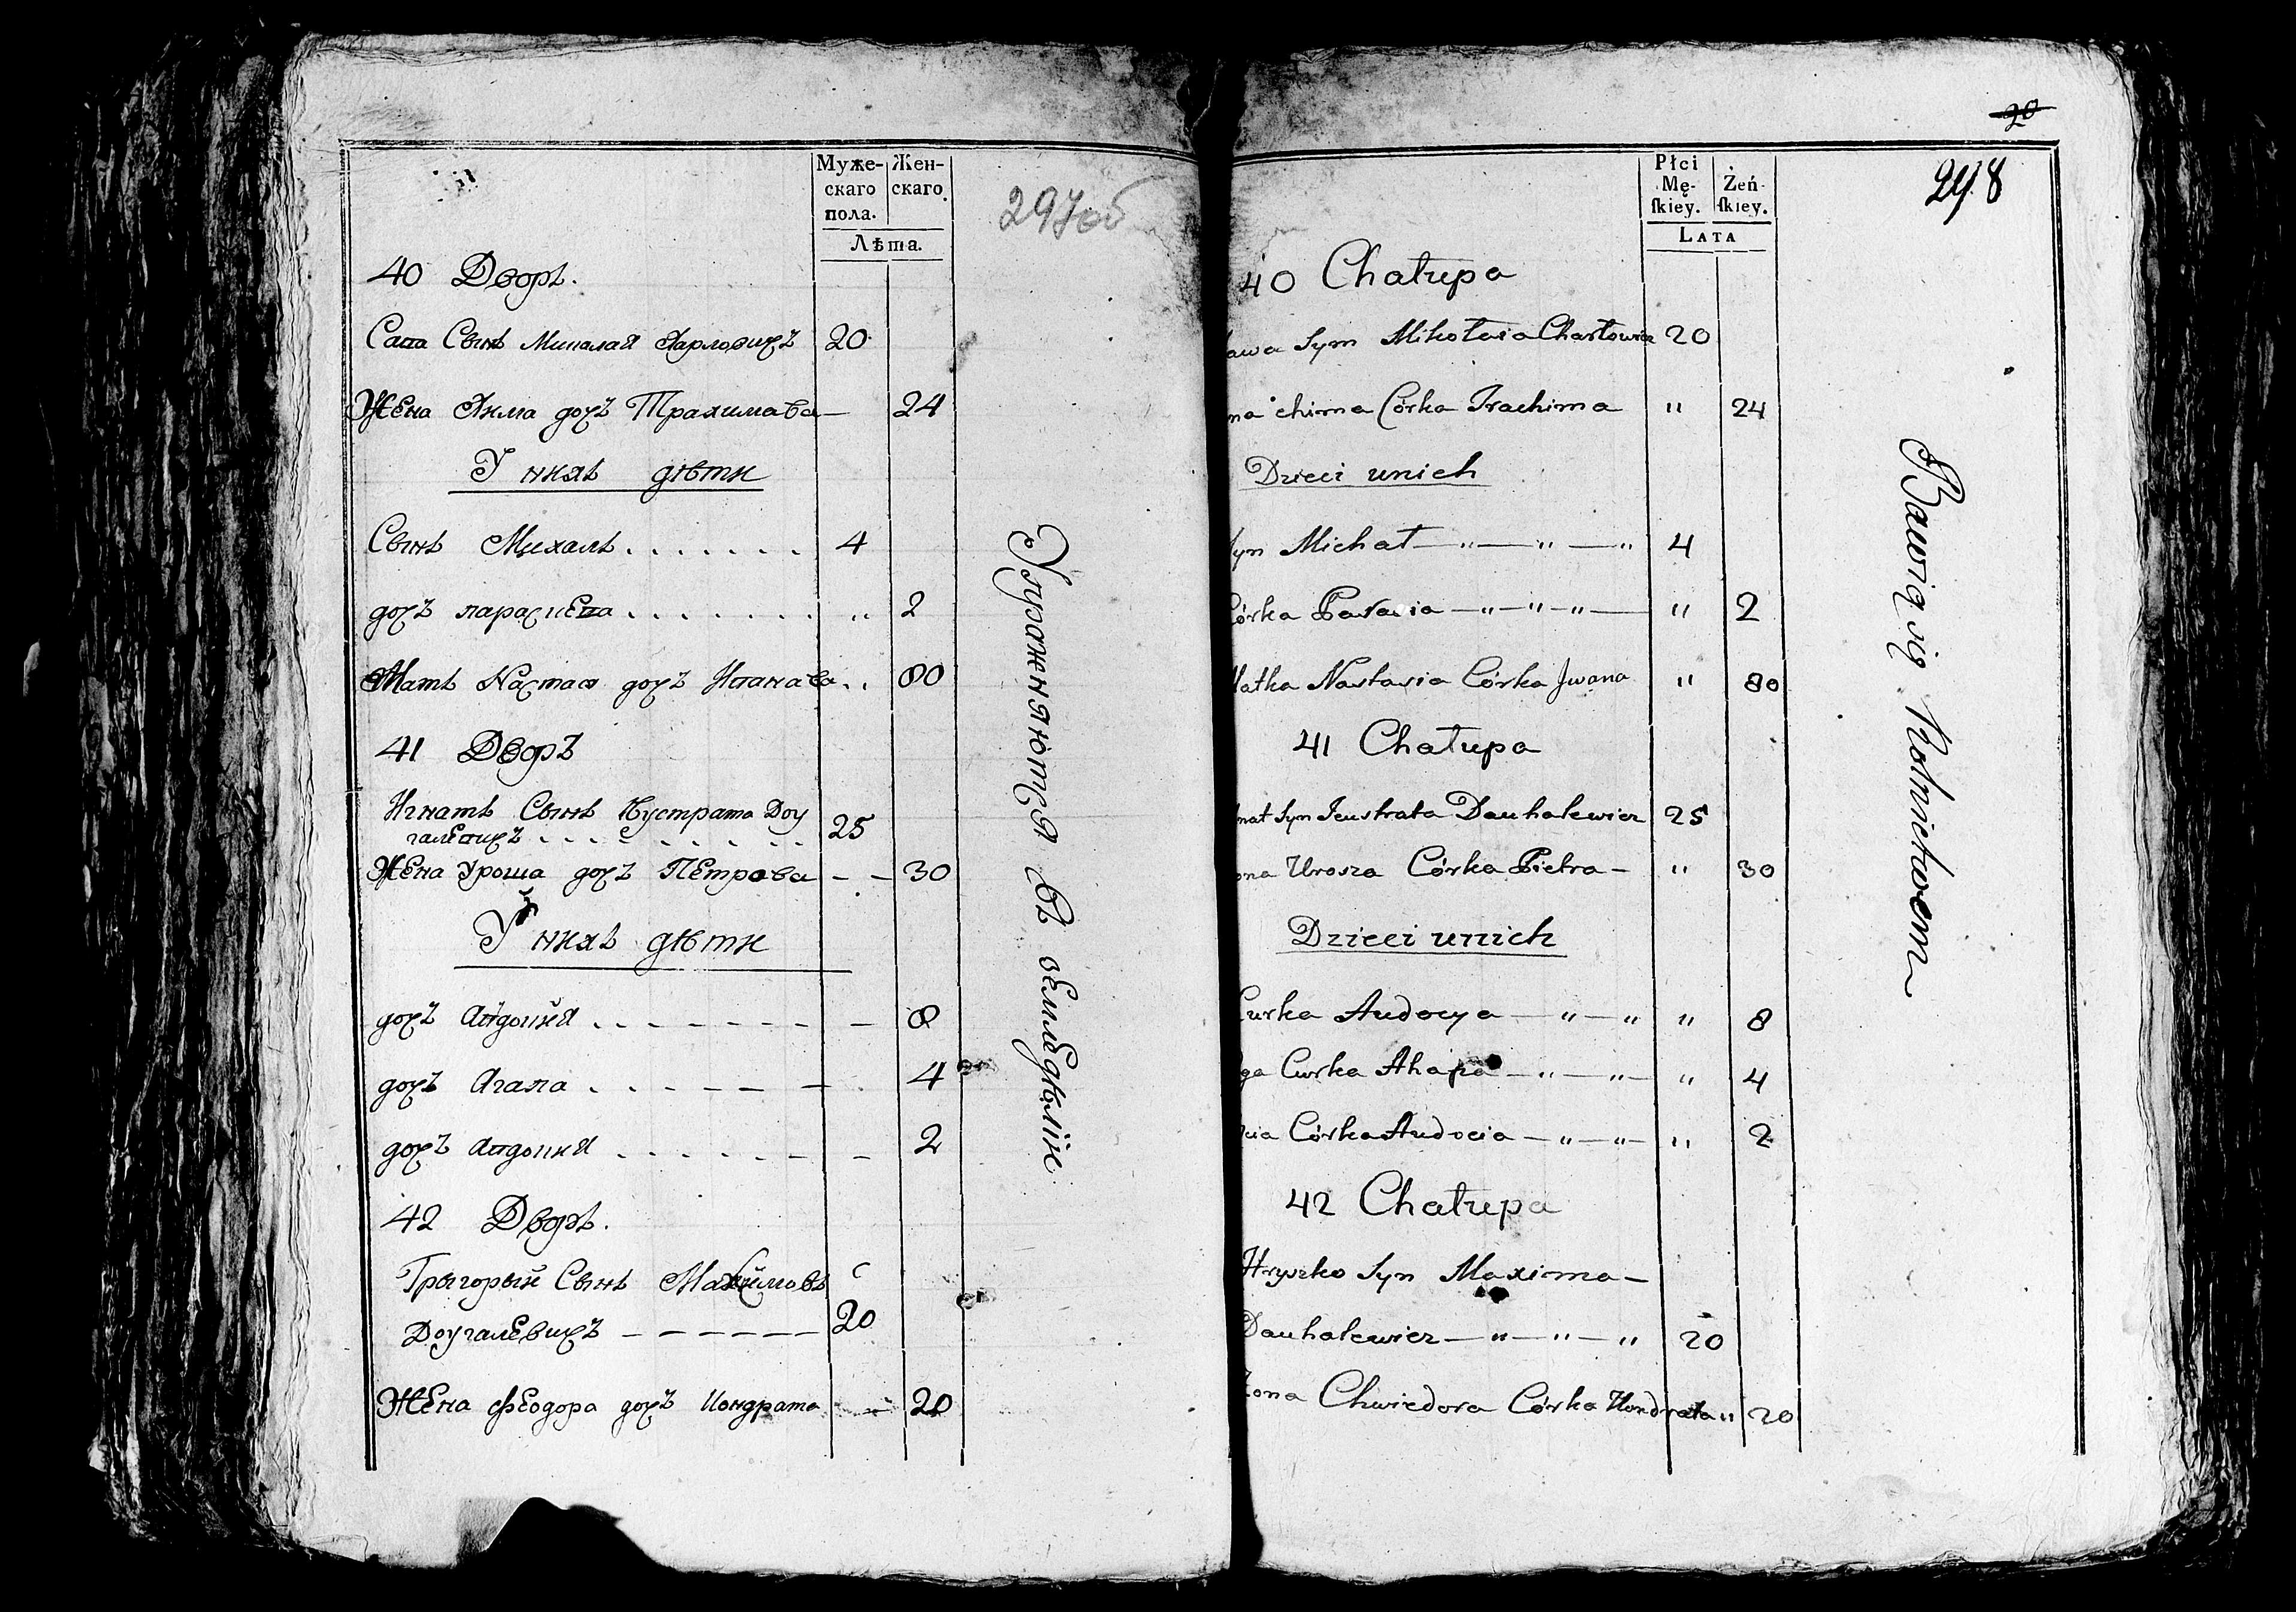 Муже-
скаго
пола.
Жен-
скаго.
Лѣта.
297об
40 Дворъ.
Сава Сынъ Миколая Харловичъ 20
Жена Хима дочъ Трахимава — 24
У нихъ дѣти
Сынъ Михалъ . . . . . . . 4
дочъ параскева . . . . . . . „ 2
Мать Настася дочъ Иванава . . 80
41 Дворъ
Игнатъ Сынъ Яустрата Доу
галевичъ . . . . . . . . 25
Жена Уроша дочъ Петрова — — 30
У нихъ дѣти
дочъ Авдоция . . - - - - - — 8
дочъ Агапа . . . - - - - 4
дочъ Авдоция . . . . . - - - 2
42 Дворъ.
Грыгорый Сынъ Махиймовъ
Доугалевичъ — — — — — — 20
Жена Феодора дочъ Кондрата — 20
Упражняются въ земледѣліи
20
298
Płci
Mę-
ſkiey.
Żeń-
ſkiey.
LATA
40 Chałupa
awa Syn Mikołaia Charłowicz 20
na chima Córka Trachima " 24
Dzieci unich
yn Michał — " — " — " 4
órka Parasia — " — " — " — " 2
atka Nastasia Córka Jwana " 80
41 Chałupa
nat Syn Jeustrata Dauhalewicz 25
ona Urosza Córka Pietra — " 30
Dzieci unich
Curka Audocya — " — " " 8
ga Curka Ahapa — " — " — " 4
cia Córka Audocia — " — " — " 2
42 Chałupa
Hryszko Syn Maxima —
Dauhalewicz — " — " — " 20
Żona Chwiedora Córka Kondrata " 20
Bawią się Rolnictwem